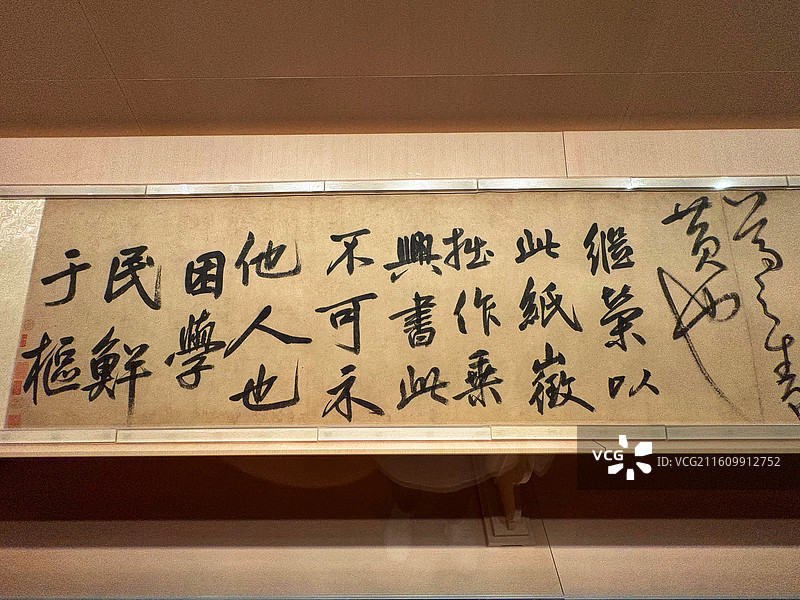 黄池
繼榮以
此紙徵
拙作乘
興書此
不可示
他人也
困學
民鮮
于樞
VCG
VCG
ID:VCG211609912752